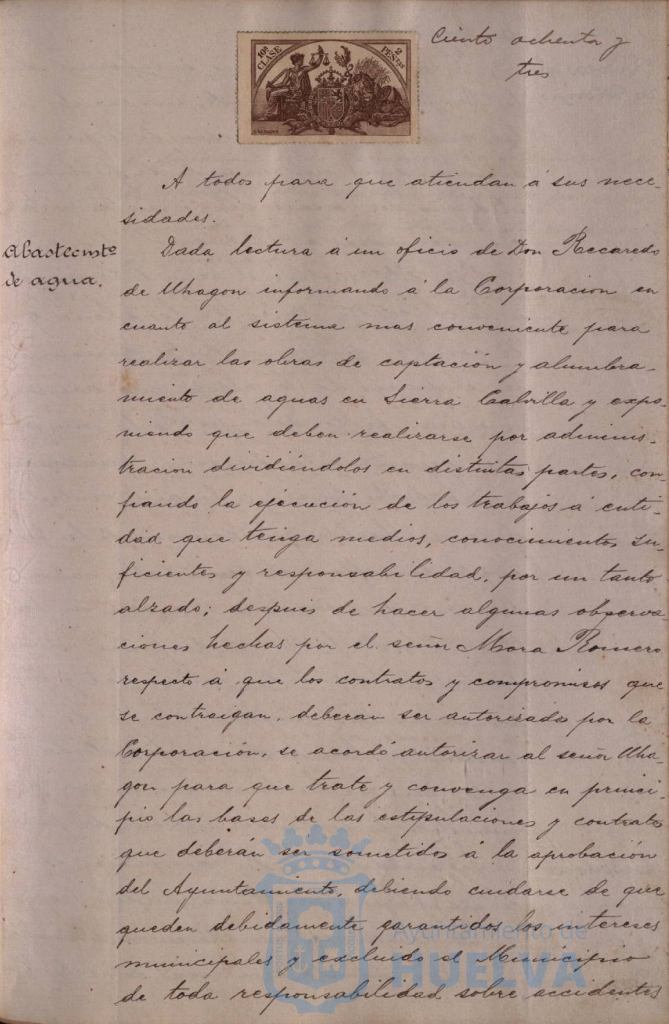 Ciento ochenta y
tres
10ª CLASE
2 PESETAS
A todos para que atiendan á sus nece-
sidades.
Abastecmto
de agua.
Dada lectura á un oficio de Don Recaredo
de Uhagon informando á la Corporacion en
cuanto al sistema mas conveniente para
realizar las obras de captación y alumbra-
miento de aguas en Sierra Calvilla y expo-
niendo que deben realizarse por adminis-
tracion dividiéndolos en distintas partes, con-
fiando la ejecución de los trabajos á enti-
dad que tenga medios, conocimientos su-
ficientes y responsabilidad, por un tanto
alzado; despues de hacer algunas observa-
ciones hechas por el señor Mora Romero
respecto á que los contratos y compromisos que
se contraigan, deberán ser autorizado por la
Corporación, se acordó autorizar al señor Uha-
gon para que trate y convenga en princi-
pio las bases de las estipulaciones y contratos
que deberán ser sometidos á la aprobación
del Ayuntamiento, debiendo cuidarse de que
queden debidamente garantidos los intereses
municipales y excluido el Municipio
de toda responsabilidad sobre accidentes
Ayuntamiento de
HUELVA